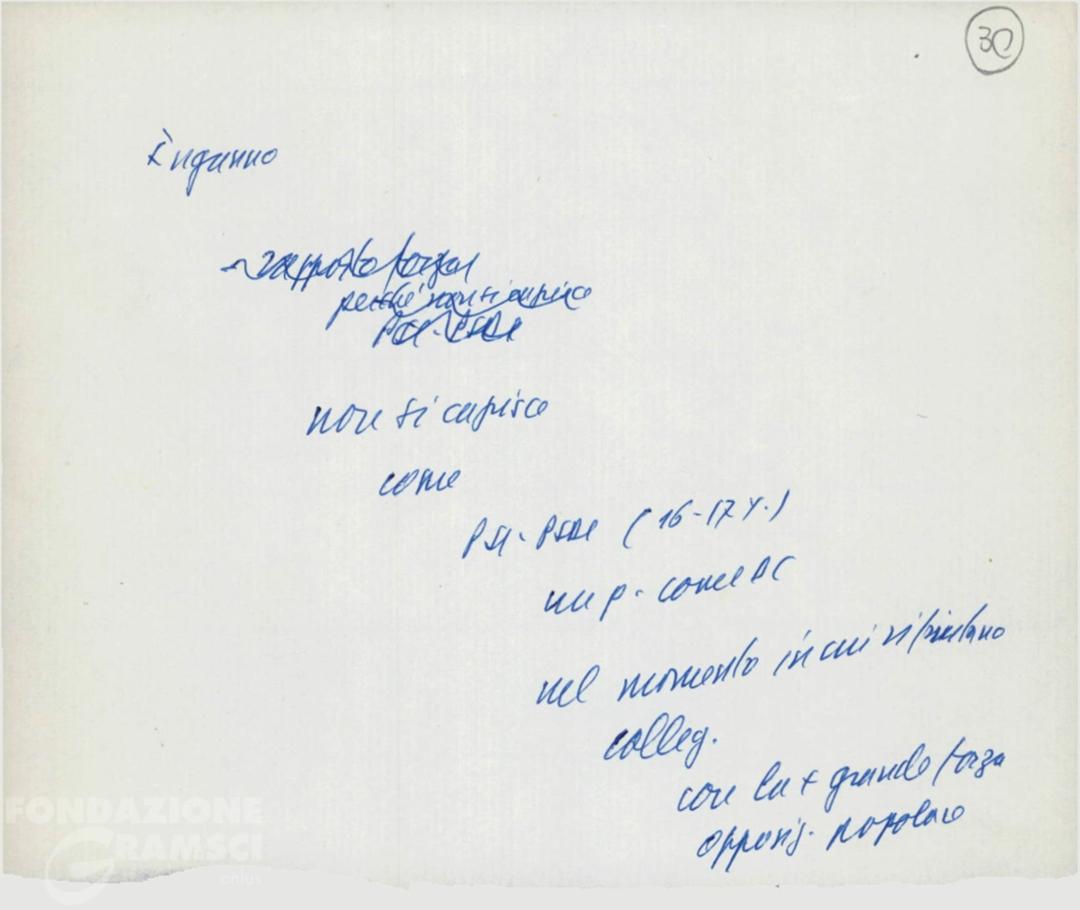 30
Inganno
rapporto forza
perché non si capisce
PSI-PSDI
non si capisce
come
PSI-PSDI (16-17%)
come DC
nel momento in cui rifiutano
colleg.
con la + grande forza
opposiz. popolare
FONDAZIONE
GRAMSCI
onlus